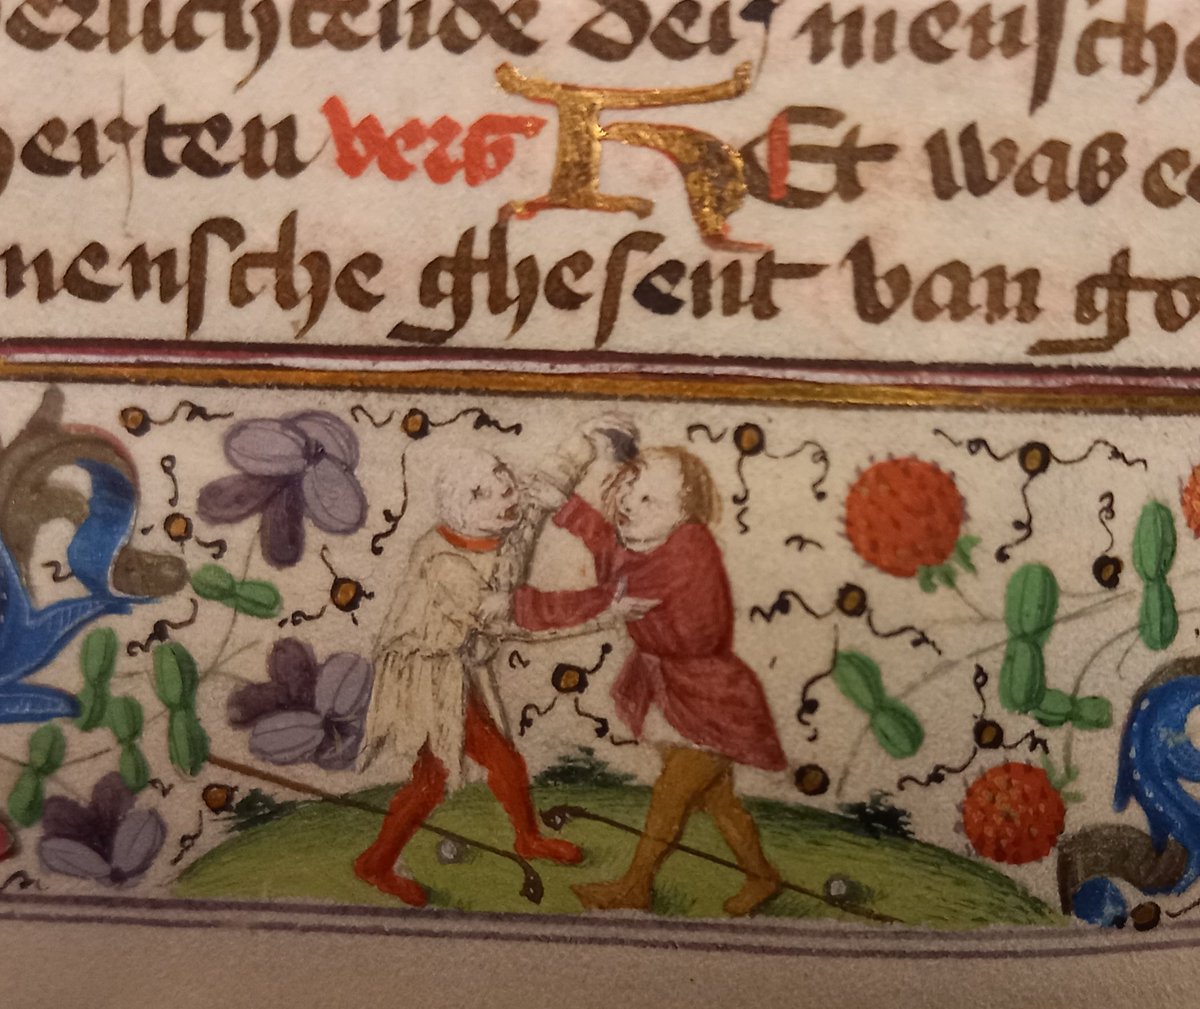 erlichtende der mensche
herten vers HEt was ee
mensche ghesent van go